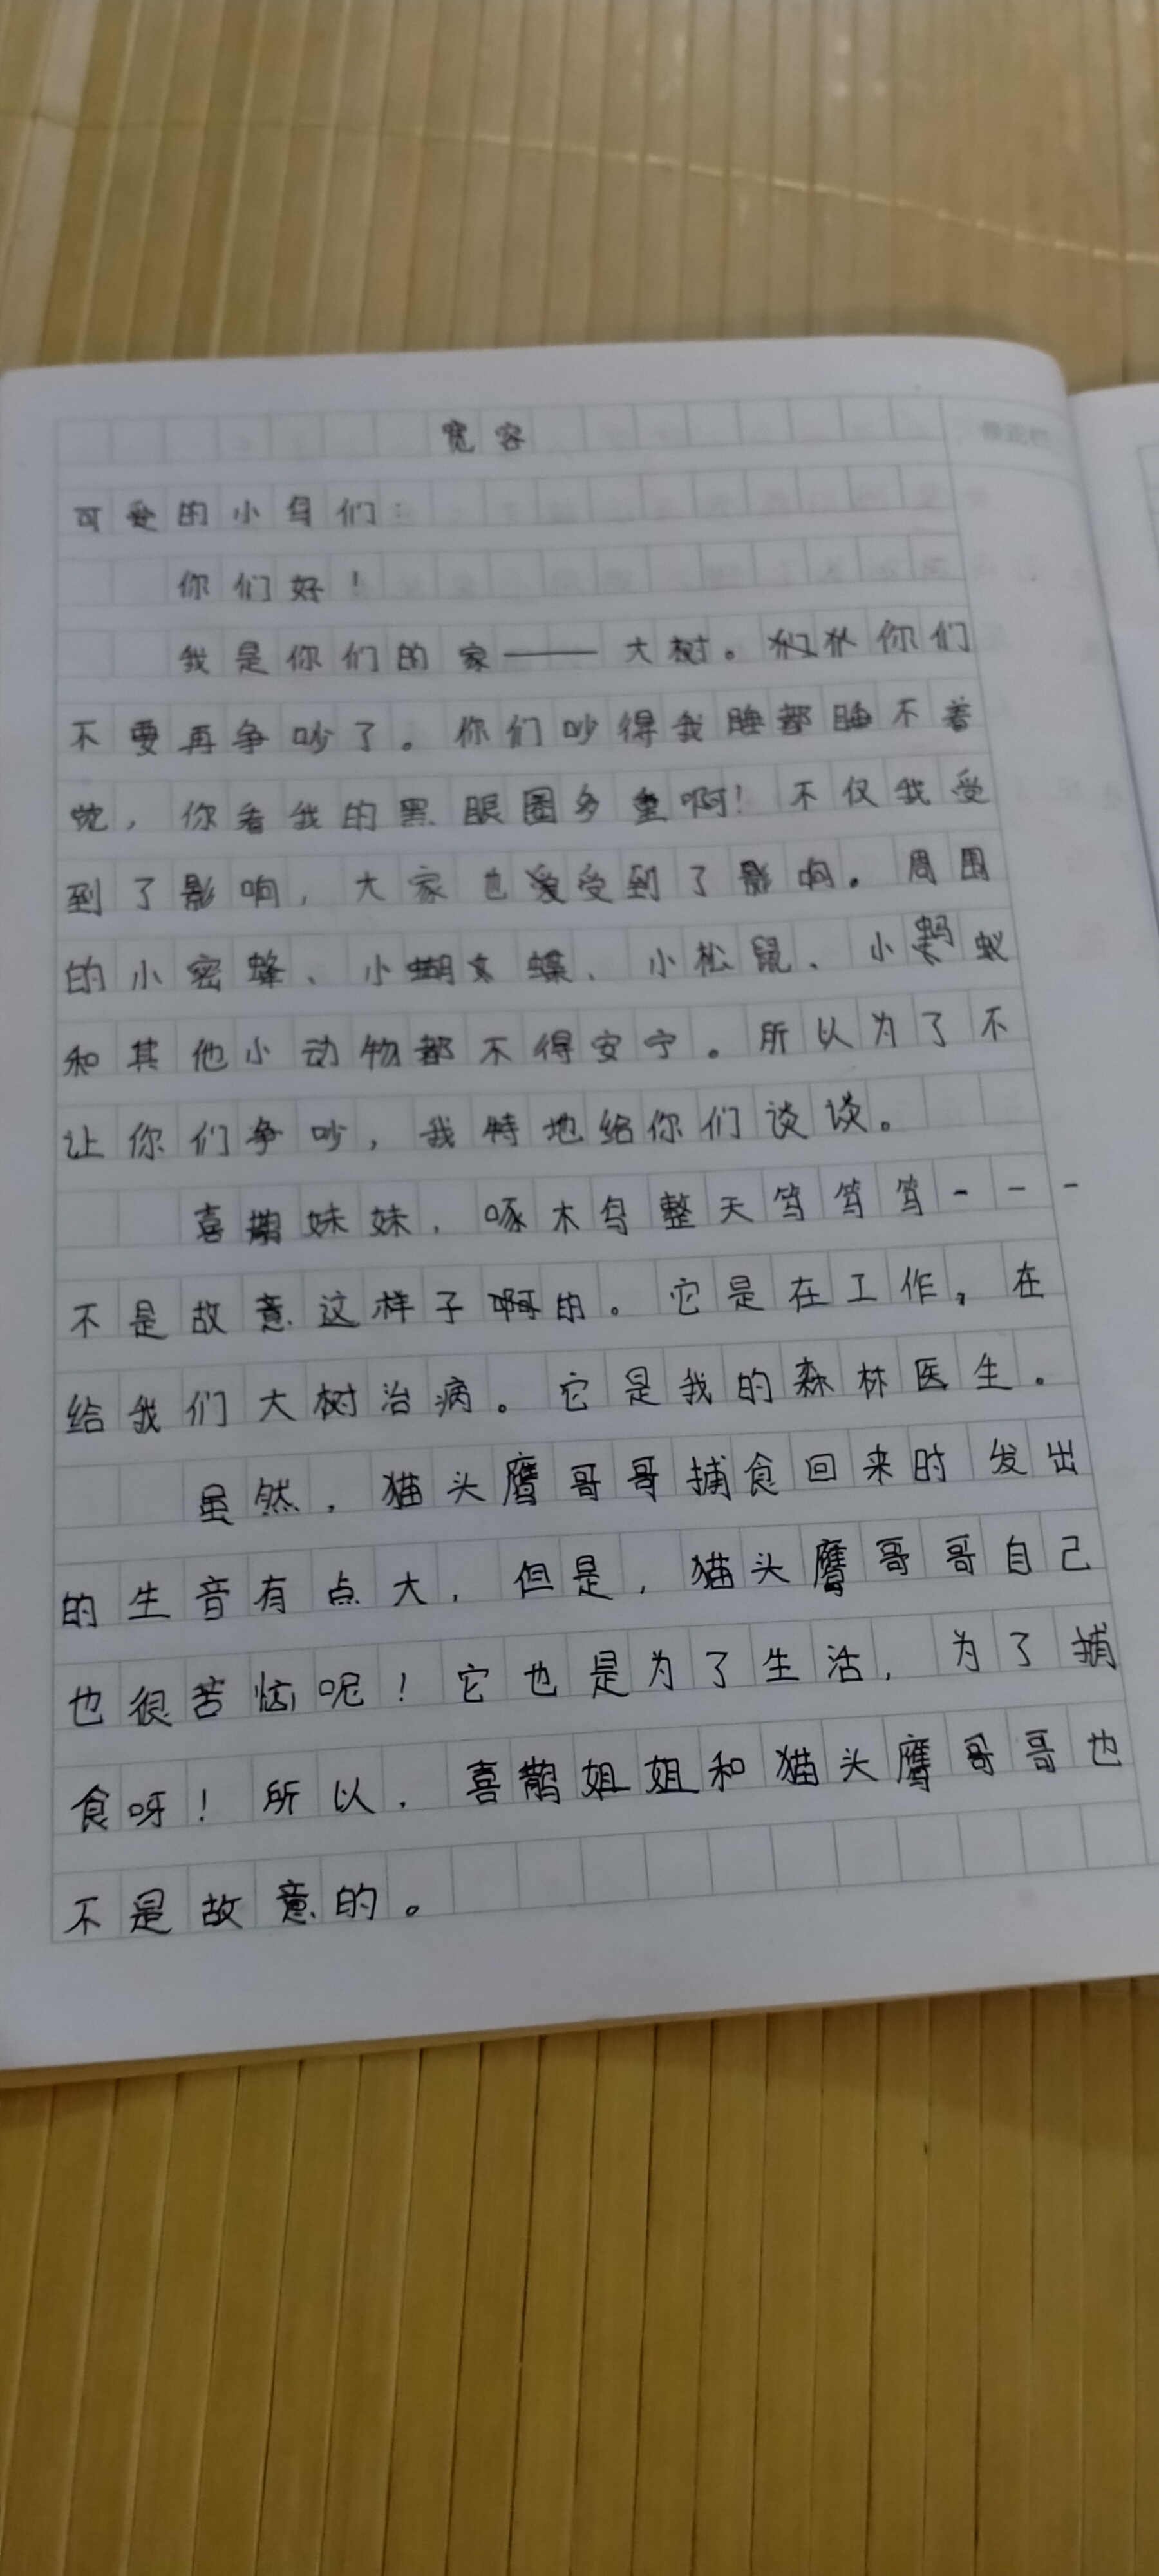 宽容
可爱的小鸟们：
你们好！
我是你们的家——大树。你们
不要再争吵了。你们吵得我睡都睡不着
觉，你看我的黑眼圈多重啊！不仅我受
到了影响，大家也受到了影响。周围
的小密蜂、小蝴蝶、小松鼠、小蚂蚁
和其他小动物都不得安宁。所以为了不
让你们争吵，我特地给你们谈谈。
喜鹊妹妹，啄木鸟整天笃笃笃---
不是故意这样子的。它是在工作，在
给我们大树治病。它是我的森林医生。
虽然，猫头鹰哥哥捕食回来时发出
的生音有点大，但是，猫头鹰哥哥自己
也很苦恼呢！它也是为了生活，为了捕
食呀！所以，喜鹊姐姐和猫头鹰哥哥也
不是故意的。